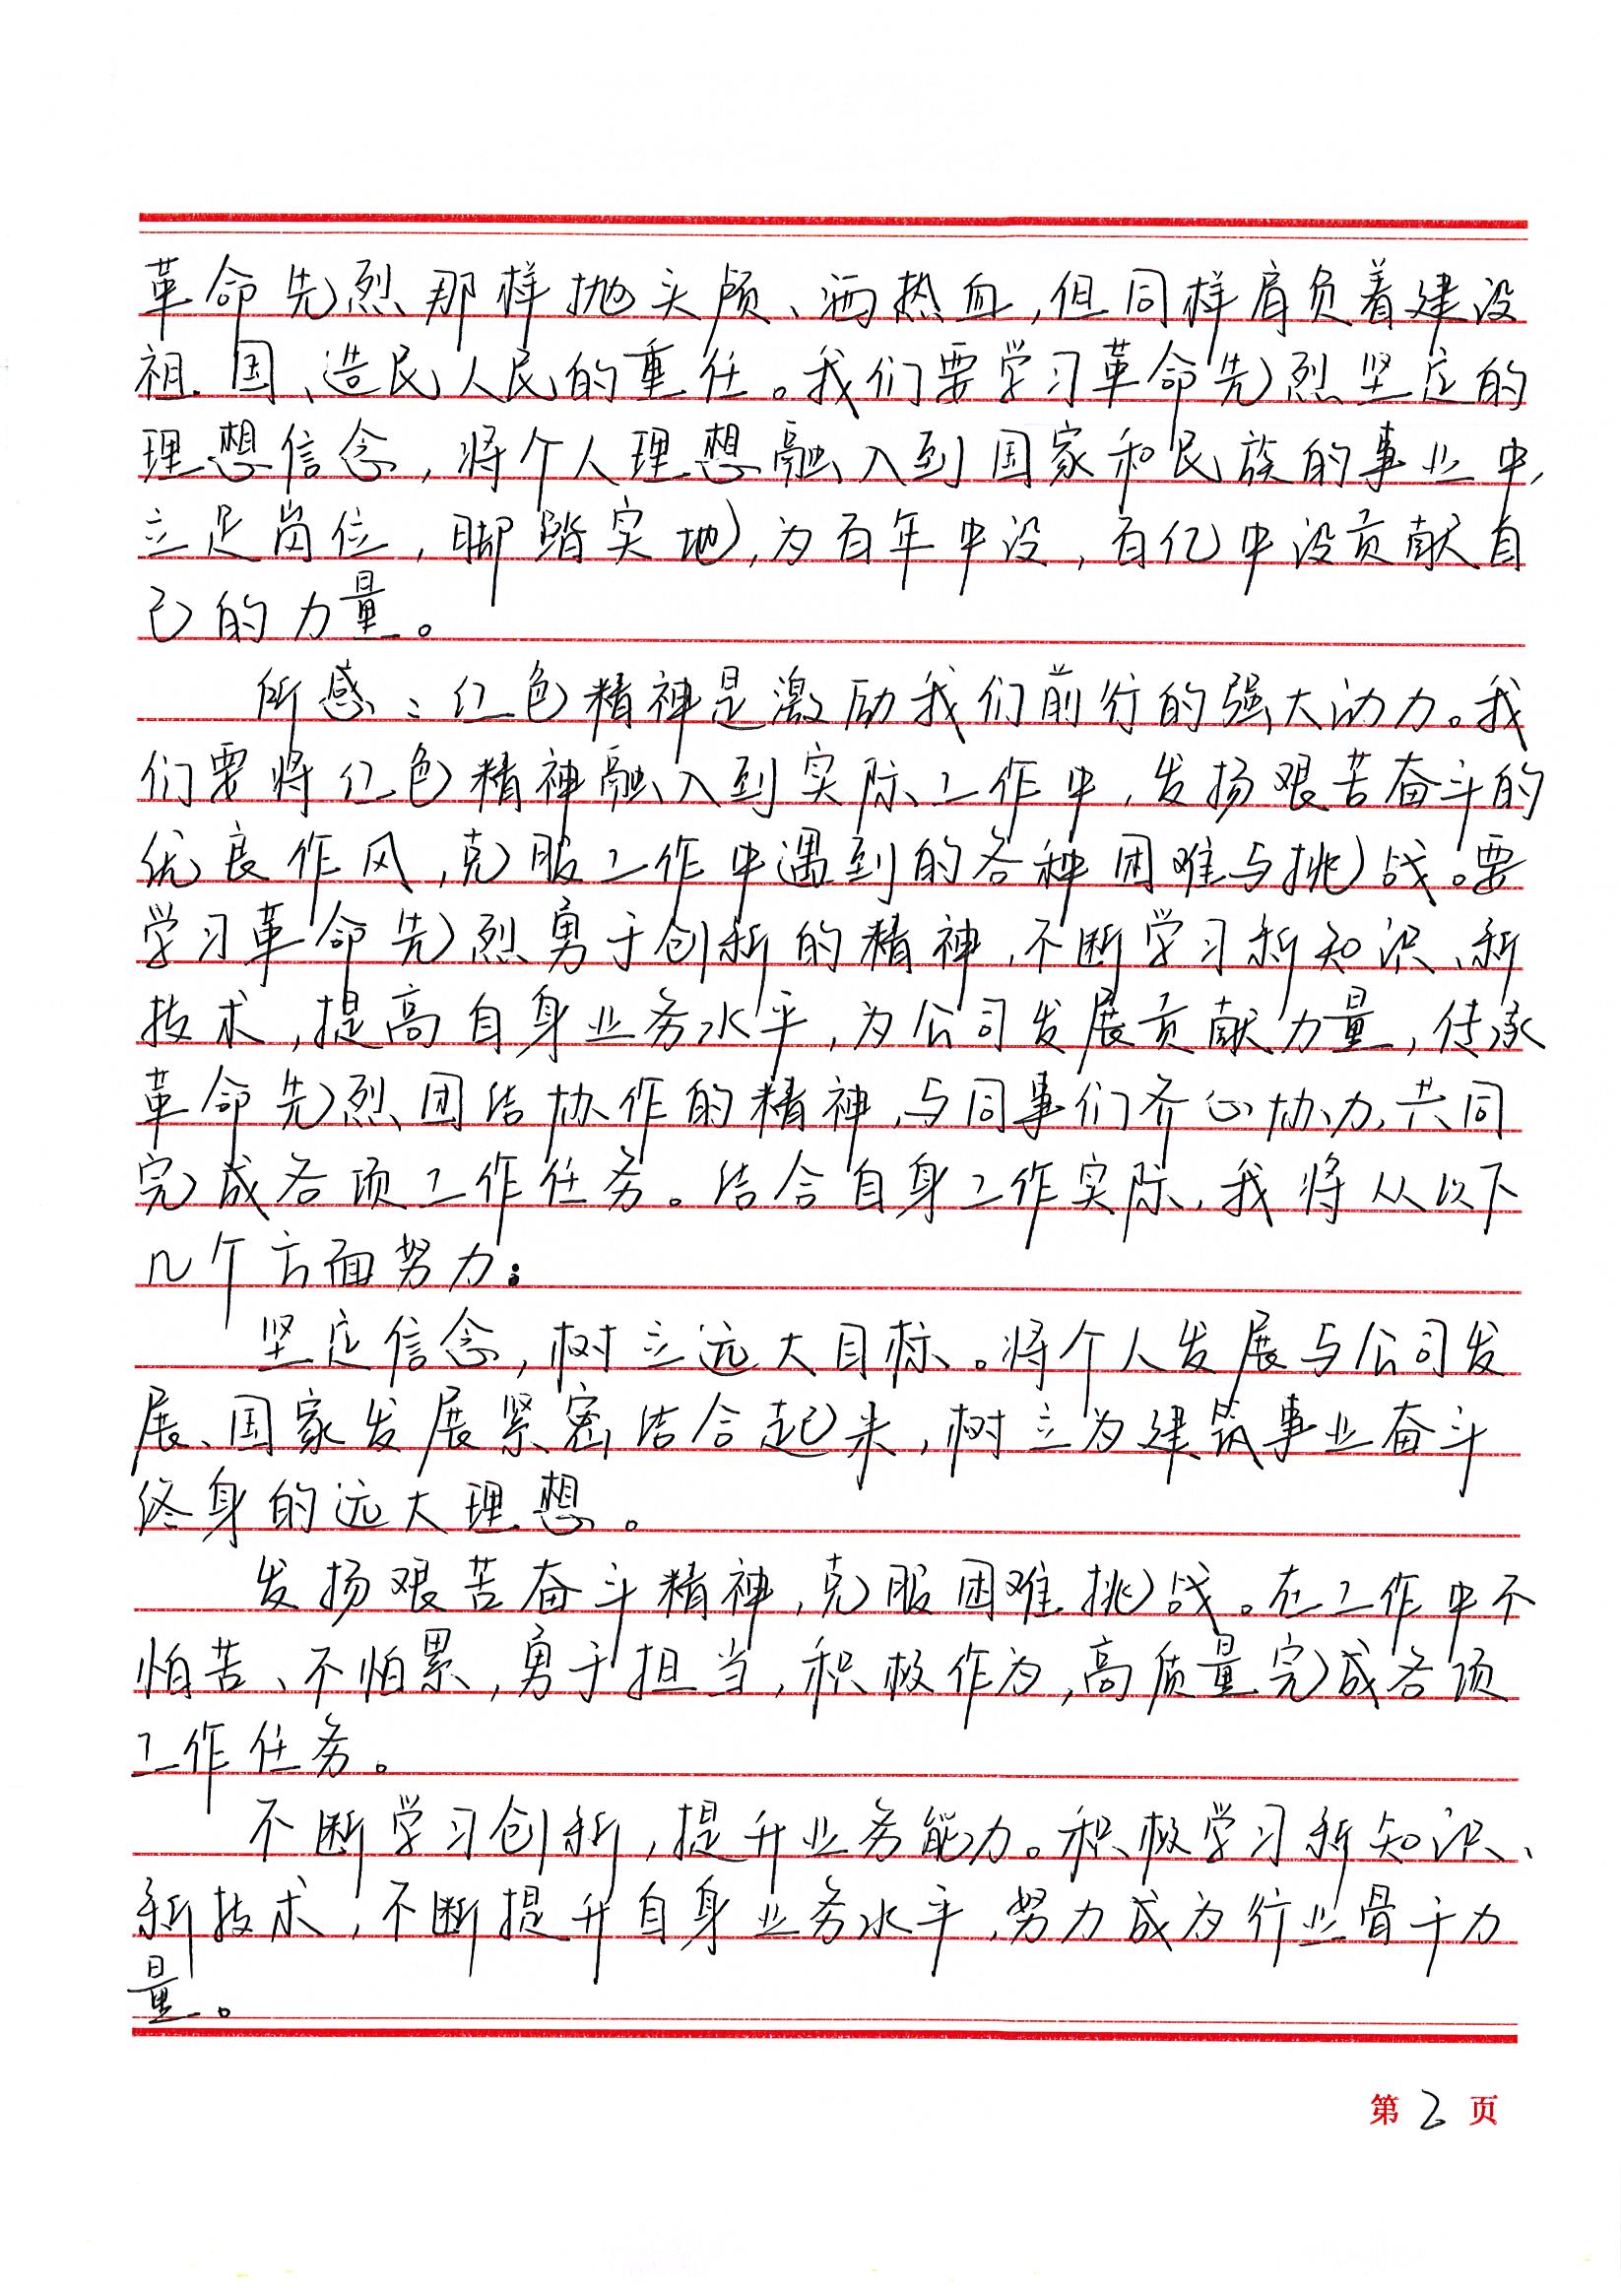 革命先烈那样抛头颅、洒热血,但同样肩负着建设
祖国、造民人民的重任。我们要学习革命先烈坚定的
理想信念,将个人理想融入到国家和民族的事业中,
立足岗位,脚踏实地,为百年中设,百亿中设贡献自
己的力量。
所感:红色精神是激励我们前行的强大动力。我
们要将红色精神融入到实际工作中,发扬艰苦奋斗的
优良作风,克服工作中遇到的各种困难与挑战。要
学习革命先烈勇于创新的精神,不断学习新知识、新
技术,提高自身业务水平,为公司发展贡献力量,传承
革命先烈团结协作的精神,与同事们齐心协力,共同
完成各项工作任务。结合自身工作实际,我将从以下
几个方面努力:
坚定信念,树立远大目标。将个人发展与公司发
展、国家发展紧密结合起来,树立为建筑事业奋斗
终身的远大理想。
发扬艰苦奋斗精神,克服困难挑战。在工作中不
怕苦、不怕累,勇于担当,积极作为,高质量完成各项
工作任务。
不断学习创新,提升业务能力。积极学习新知识、
新技术,不断提升自身业务水平,努力成为行业骨干力
量。
第2页